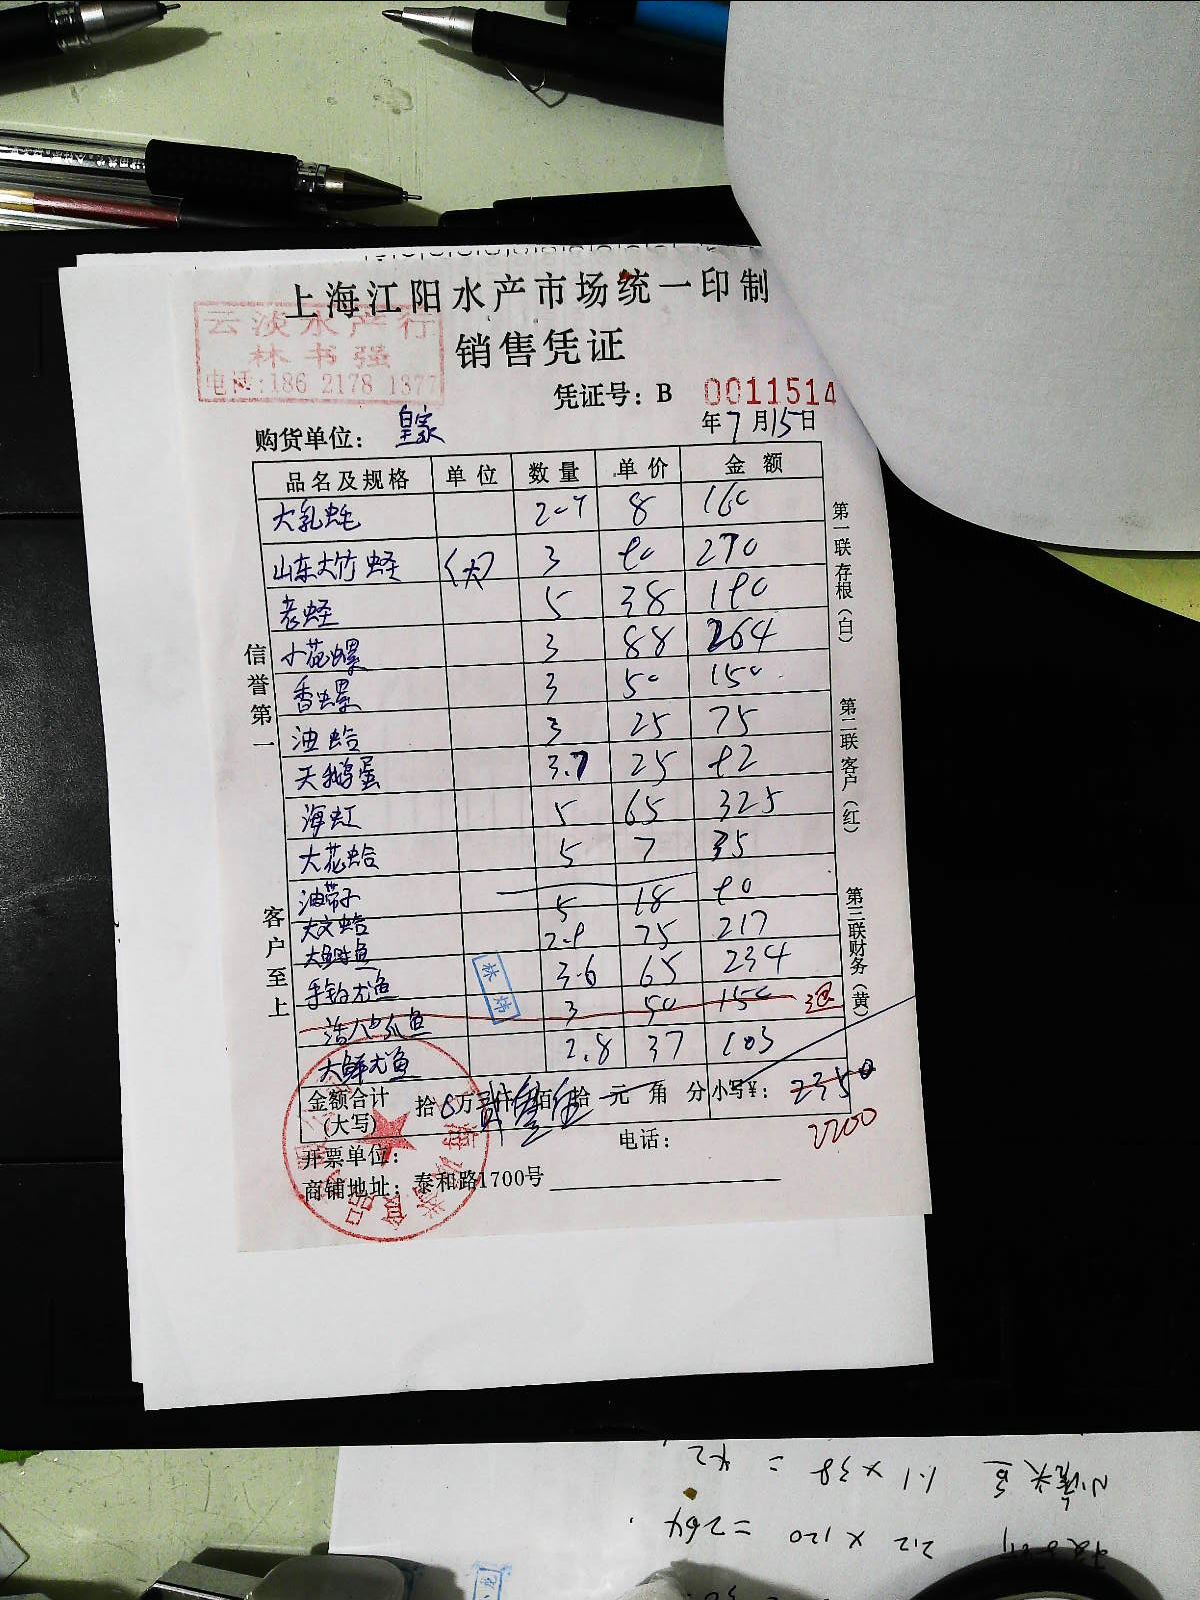 上海江阳水产市场统一印制
云淡水产行
林书强
电话:186 2178 1377
销售凭证
凭证号：B 0011514
购货单位： 皇家
年7月15日
品名及规格 单位 数量 单价 金额
大乳蚝 8 160
山东大竹蛏 (大) 3 90 270
老蛏 5 38 190
小花螺 3 88 264
香螺 3 50 150
油蛤 3 25 75
天鹅蛋 3.7 25 92
海虹 5 65 325
大花蛤 5 7 35
油带子 5 18 90
大文蛤 2.9 75 217
大鲍鱼 3.6 65 234
手钓尤鱼 3 50 150 退
活八爪鱼 2.8 37 103
大鲜尤鱼
金额合计
(大写)
拾 万 仟 佰 拾 元 角 分 小写¥： 2350
2200
开票单位： 电话：
商铺地址：泰和路1700号
信誉第一
客户至上
第一联 存根（白）
第二联 客户（红）
第三联 财务（黄）
1.1 x 38 = 42
2.2 x 120 = 264